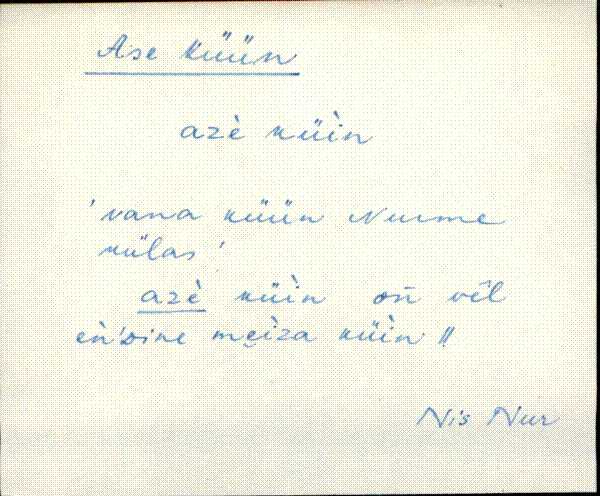 Ase küün
azè küìn
'vana küün Nurme
külas'
azè küìn on̄ vêl
eǹ'dine mẹìza küìn ǁ
Nis Nur